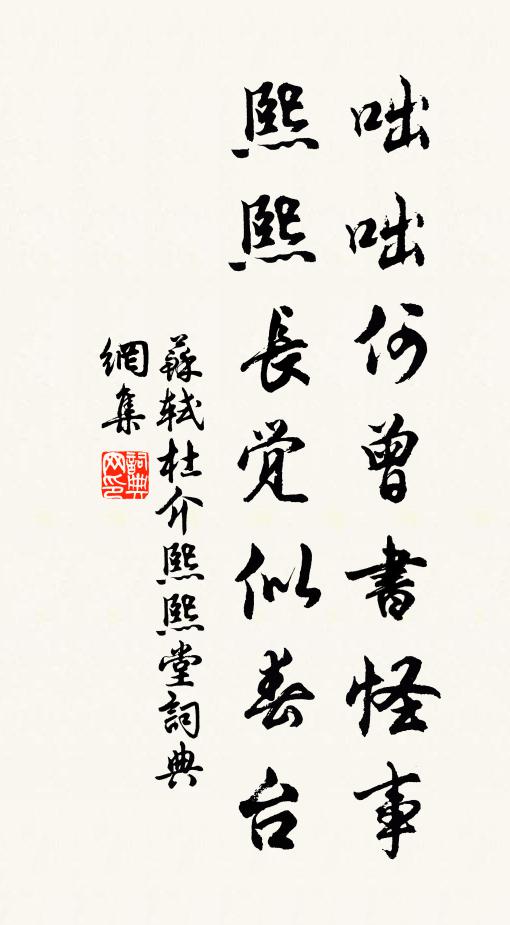 咄咄何曾書怪事
熙熙長觉似春台
蘇軾杜介熙熙堂詞典
網集
詞典網印